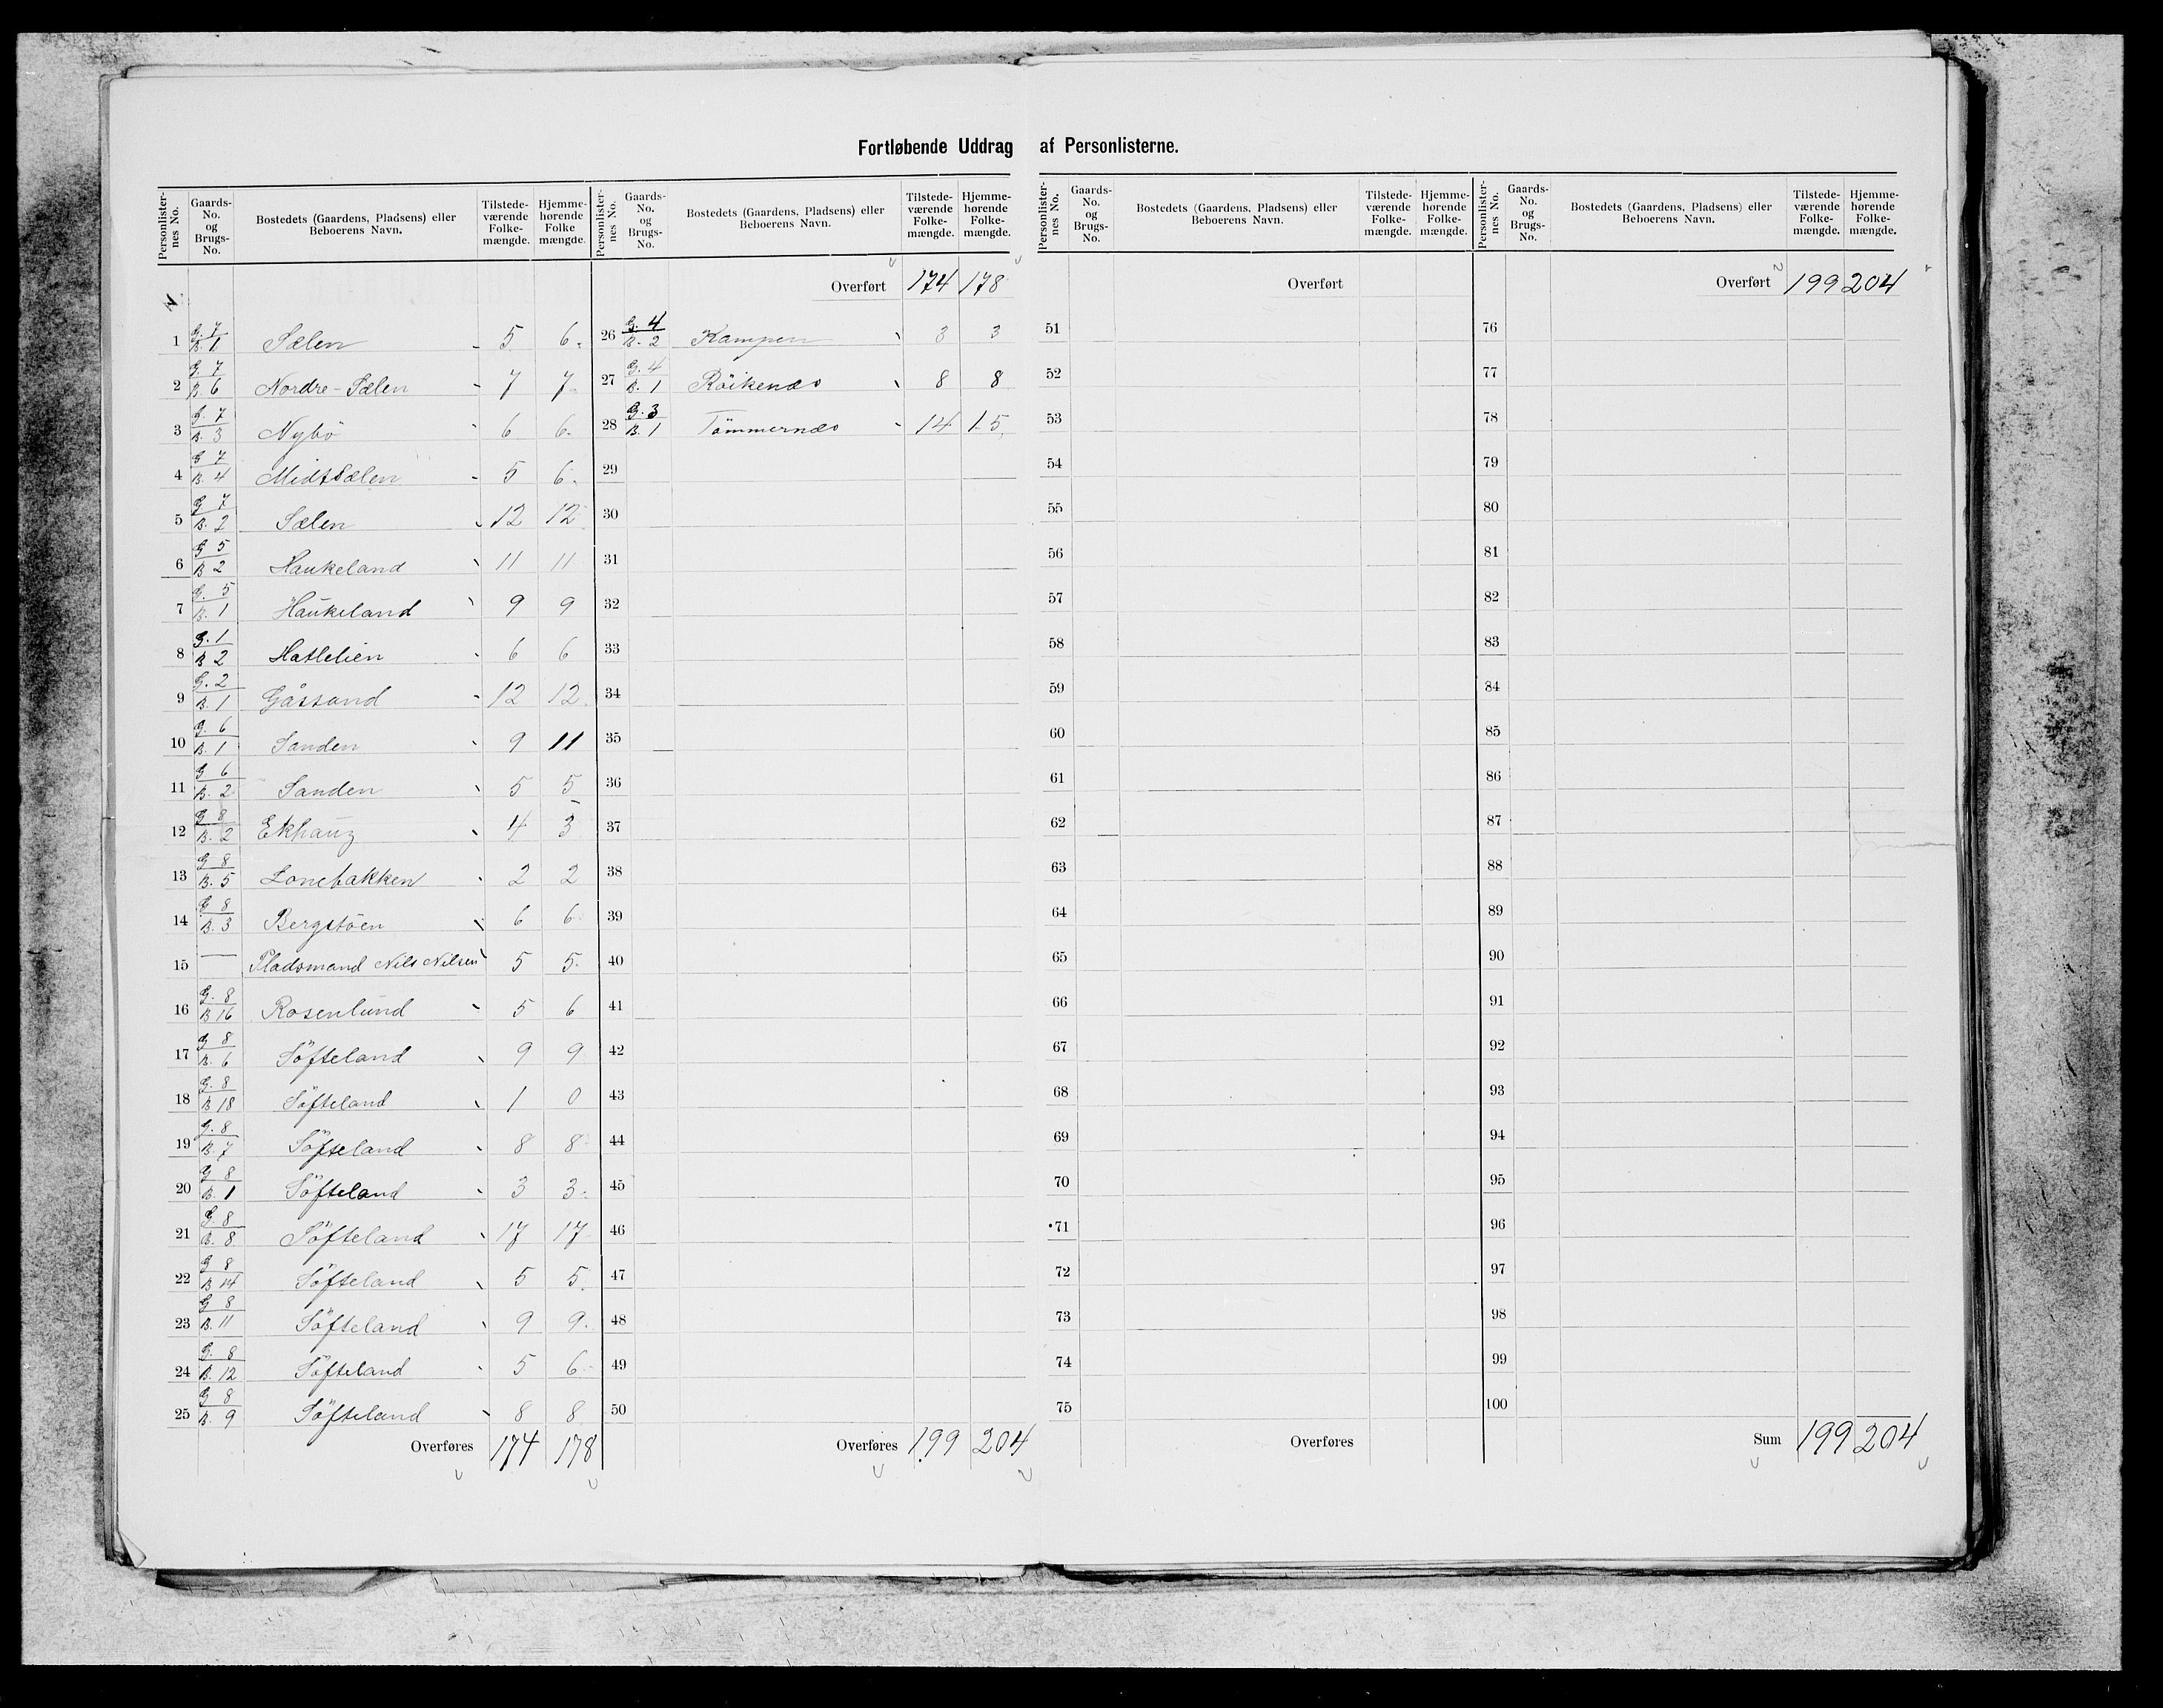 Fortløbende Uddrag af Personlisterne.
Personlister-nes No. | Gaards-No. og Brugs-No. | Bostedets (Gaardens, Pladsens) eller Beboerens Navn. | Tilstede-værende Folke-mængde. | Hjemme-hørende Folke mængde.
1 | G. 7 B. 1 | Sælen | 5 | 6
2 | G. 7 B. 6 | Nordre-Sælen | 7 | 7
3 | G. 7 B. 3 | Nybö | 6 | 6
4 | G 7 B. 4 | Midtsælen | 5 | 6
5 | G 7 B. 2 | Sælen | 12 | 12
6 | G 5 B 2 | Haukeland | 11 | 11
7 | G. 5 B. 1 | Haukeland | 9 | 9
8 | G. 1 B 2 | Hatlelien | 6 | 6
9 | G. 2 B. 1 | Gåssand | 12 | 12
10 | G. 6 B. 1 | Sanden | 9 | 11
11 | G 6 B. 2 | Sanden | 5 | 5
12 | G 8 B. 2 | Ekhaug | 4 | 3
13 | G 8 B. 5 | Lonebakken | 2 | 2
14 | G 8 B. 3 | Bergstöen | 6 | 6
15 | — | Pladsmand Nils Nilsen | 5 | 5
16 | G. 8 B 16 | Rosenlund | 5 | 6
17 | G 8 B. 6 | Söfteland | 9 | 9
18 | G. 8 B 18 | Söfteland | 1 | 0
19 | G. 8 B. 7 | Söfteland | 8 | 8
20 | G 8 B. 1 | Söfteland | 3 | 3
21 | G. 8 B. 8 | Söfteland | 17 | 17
22 | G 8 B 14 | Söfteland | 5 | 5
23 | G 8 B. 11 | Söfteland | 9 | 9
24 | G. 8 B. 12 | Söfteland | 5 | 6
25 | G 8 B. 9 | Söfteland | 8 | 8
Overføres 174 178
Personlister-nes No. | Gaards-No. og Brugs-No. | Bostedets (Gaardens, Pladsens) eller Beboerens Navn. | Tilstede-værende Folke-mængde. | Hjemme-hørende Folke-mængde.
Overført 174 178
26 | G. 4 B. 2 | Kampen | 3 | 3
27 | G. 4 B. 1 | Röikenæs | 8 | 8
28 | G. 3 B. 1 | Tömmernæs | 14 | 15
29
30
31
32
33
34
35
36
37
38
39
40
41
42
43
44
45
46
47
48
49
50
Overføres 199 204
Personlister-nes No. | Gaards-No. og Brugs-No. | Bostedets (Gaardens, Pladsens) eller Beboerens Navn. | Tilstede-værende Folke-mængde. | Hjemme-hørende Folke-mængde.
Overført
51
52
53
54
55
56
57
58
59
60
61
62
63
64
65
66
67
68
69
70
71
72
73
74
75
Overføres
Personlister-nes No. | Gaards-No. og Brugs-No. | Bostedets (Gaardens, Pladsens) eller Beboerens Navn. | Tilstede-værende Folke-mængde. | Hjemme-hørende Folke-mængde.
Overført 199 204
76
77
78
79
80
81
82
83
84
85
86
87
88
89
90
91
92
93
94
95
96
97
98
99
100
Sum 199 204